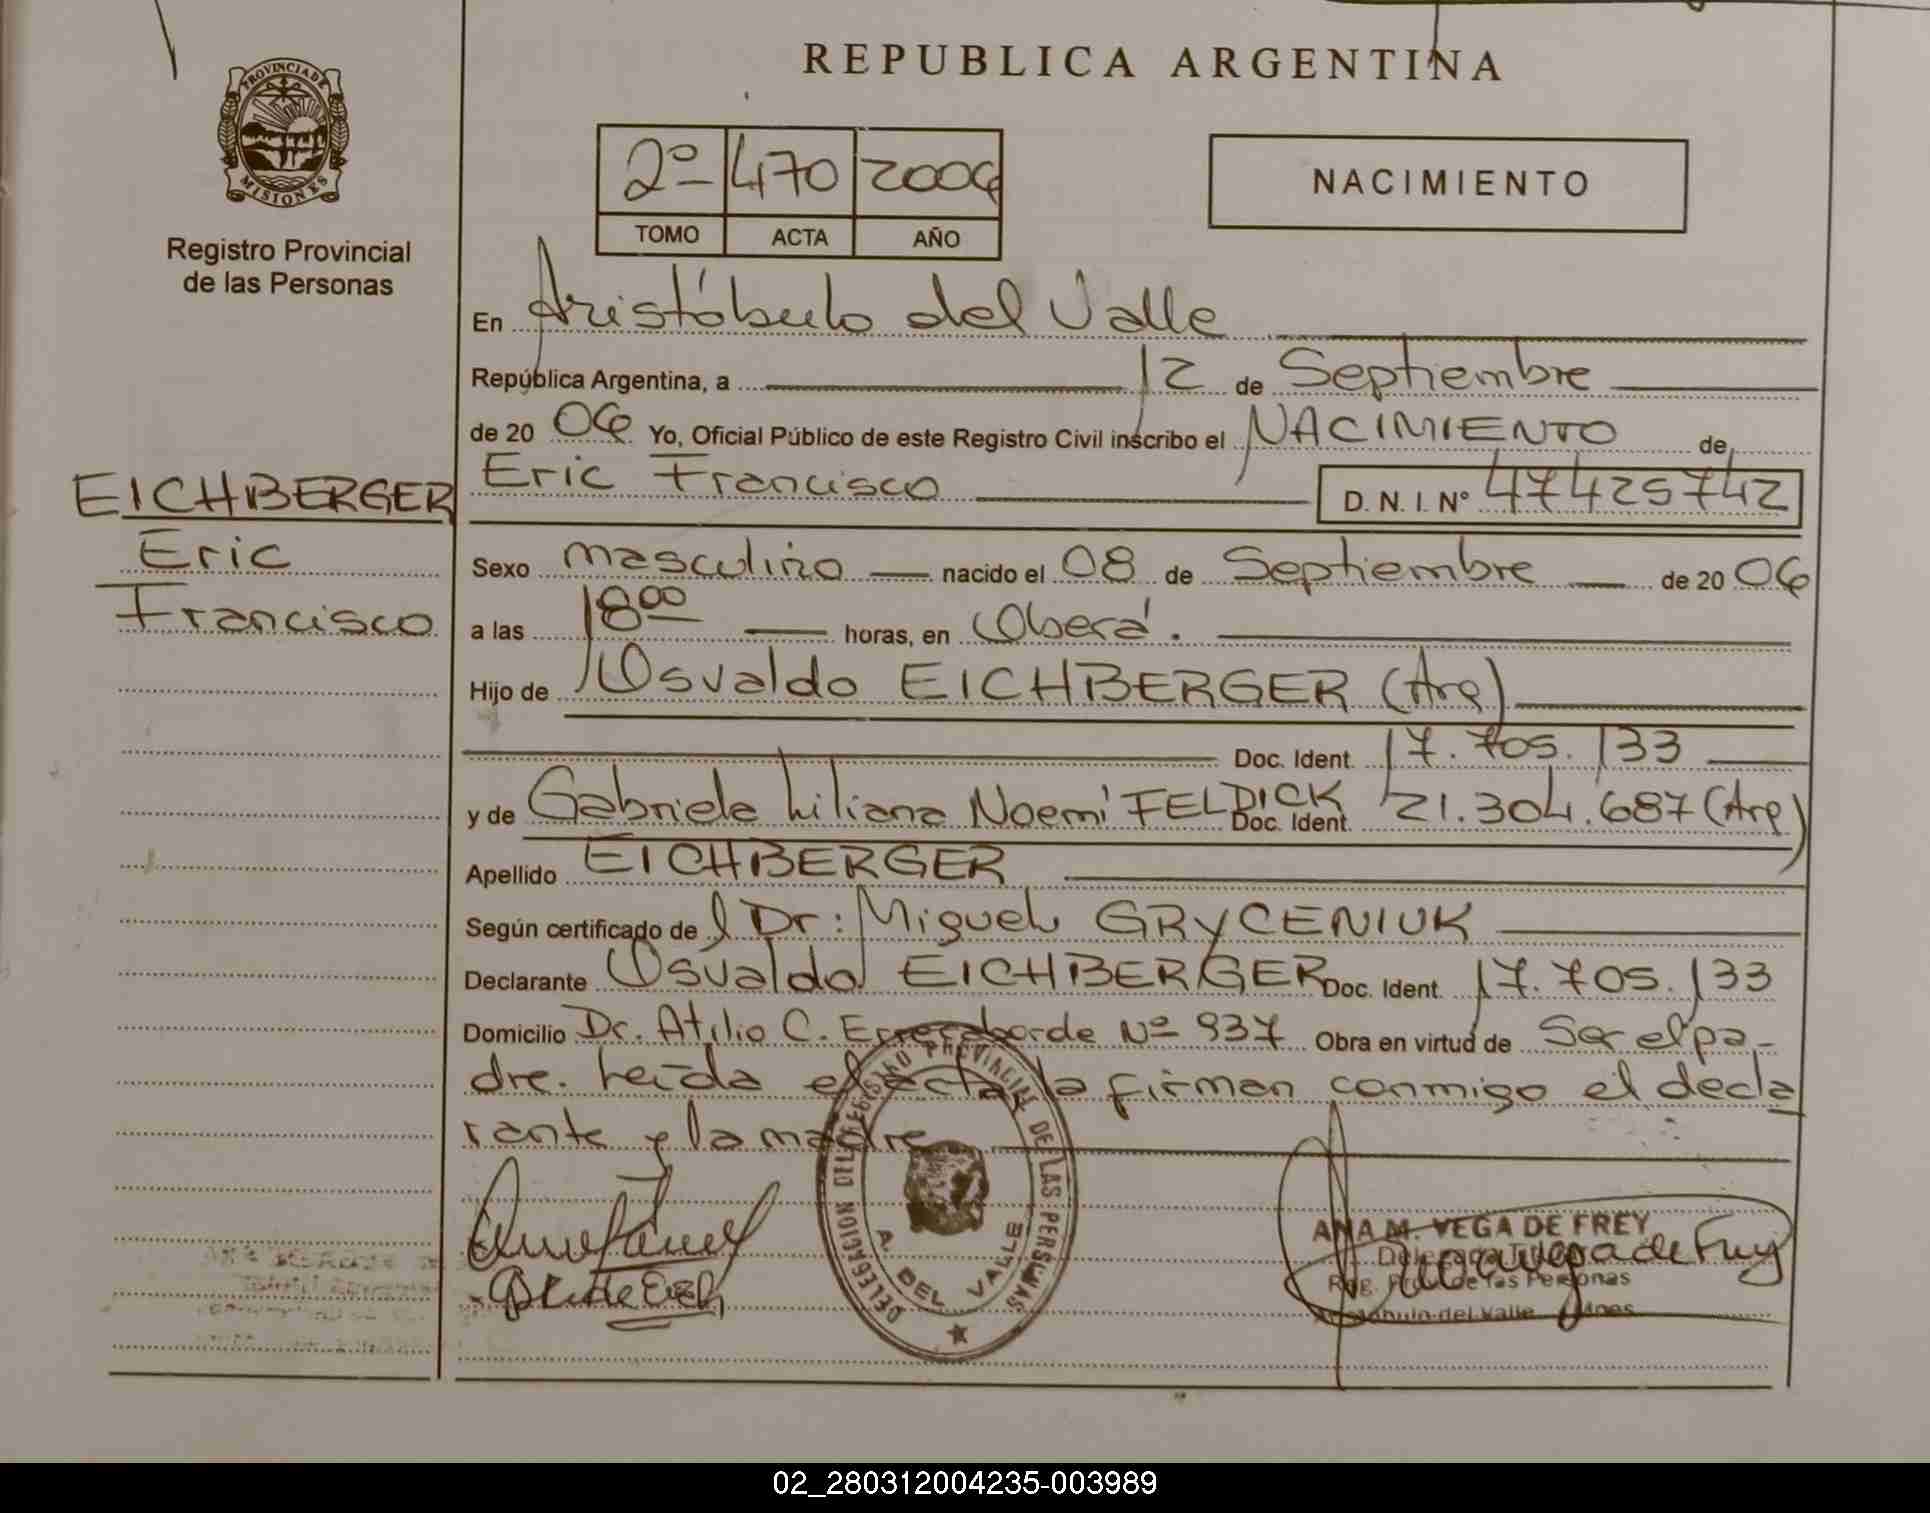 REPUBLICA ARGENTINA
PROVINCIA DE
MISIONES
Registro Provincial
de las Personas
2º 470 2006
TOMO ACTA AÑO
NACIMIENTO
En Aristóbulo del Valle
República Argentina, a 12 de Septiembre
de 20 06 Yo, Oficial Público de este Registro Civil inscribo el NACIMIENTO de
EICHBERGER
Eric
Francisco
Eric Francisco D. N. I. Nº 47425742
Sexo masculino nacido el 08 de Septiembre de 20 06
a las 18ºº horas, en Oberá.
Hijo de Osvaldo EICHBERGER (Arg)
Doc. Ident. 17.705.133
y de Gabriela Liliana Noemí FELDICK Doc. Ident. 21.304.687 (Arg)
Apellido EICHBERGER
Según certificado de l Dr: Miguel GRYCENIUK
Declarante Osvaldo EICHBERGER Doc. Ident. 17.705.133
Domicilio Dr. Atilio C. Errecaborde Nº 937 Obra en virtud de Ser el pa-
dre. Leída el acta la firman conmigo el decla
rante y la madre
DELEGACION DEL REGISTRO PROVINCIAL DE LAS PERSONAS
A. DEL VALLE
ANA M. VEGA DE FREY
Reg. Prov. de las Personas
Aristóbulo del Valle Mnes
02_280312004235-003989